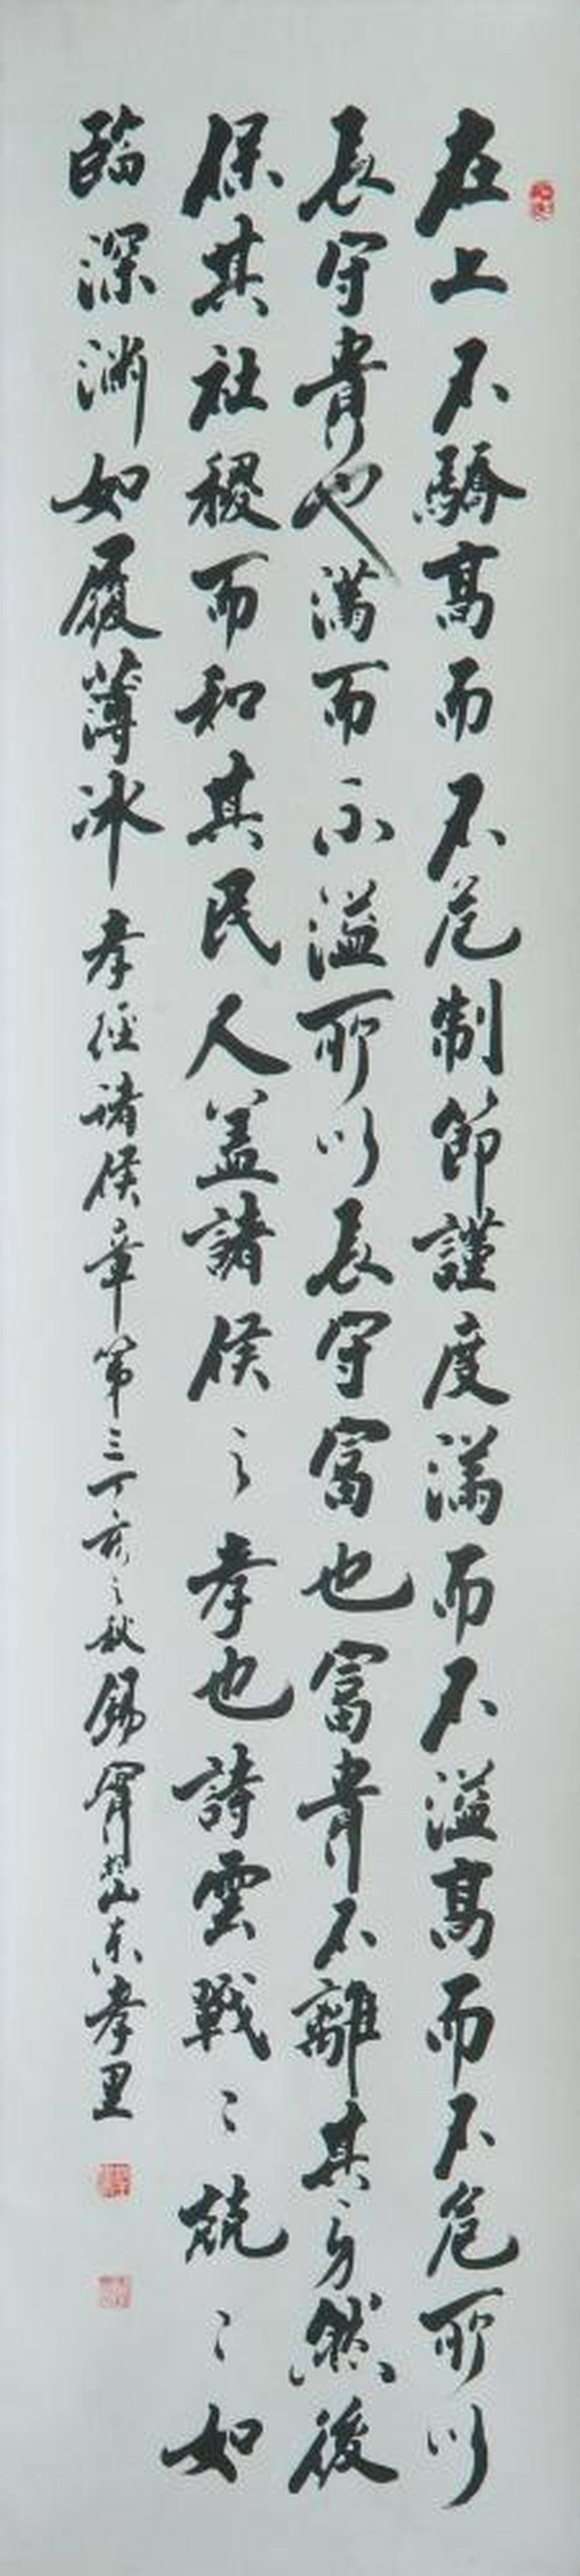 在上不驕高而不危制節謹度滿而不溢高而不危所以
長守貴也滿而不溢所以長守富也富貴不離其身然後
保其社稷而和其民人盖諸侯之孝也詩雲戰〻兢〻如
臨深淵如履薄冰 孝經諸侯章第三丁亥之秋錫於山東孝里